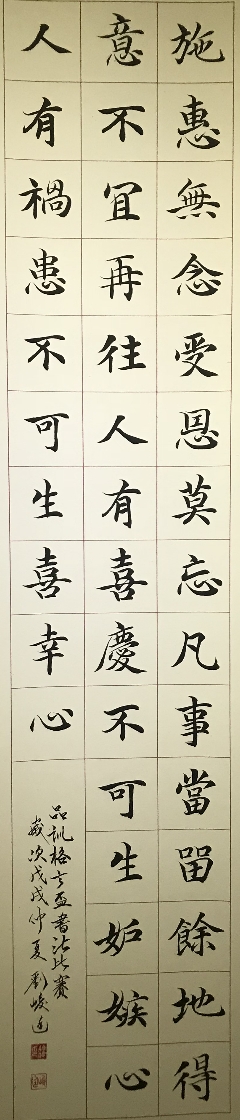 施惠無念受恩莫忘凡事當留餘地得
意不宜再往人有喜慶不可生妒嫉心
人有禍患不可生喜幸心
品訓格言盃書法比賽
歲次戊戌仲夏劉峻